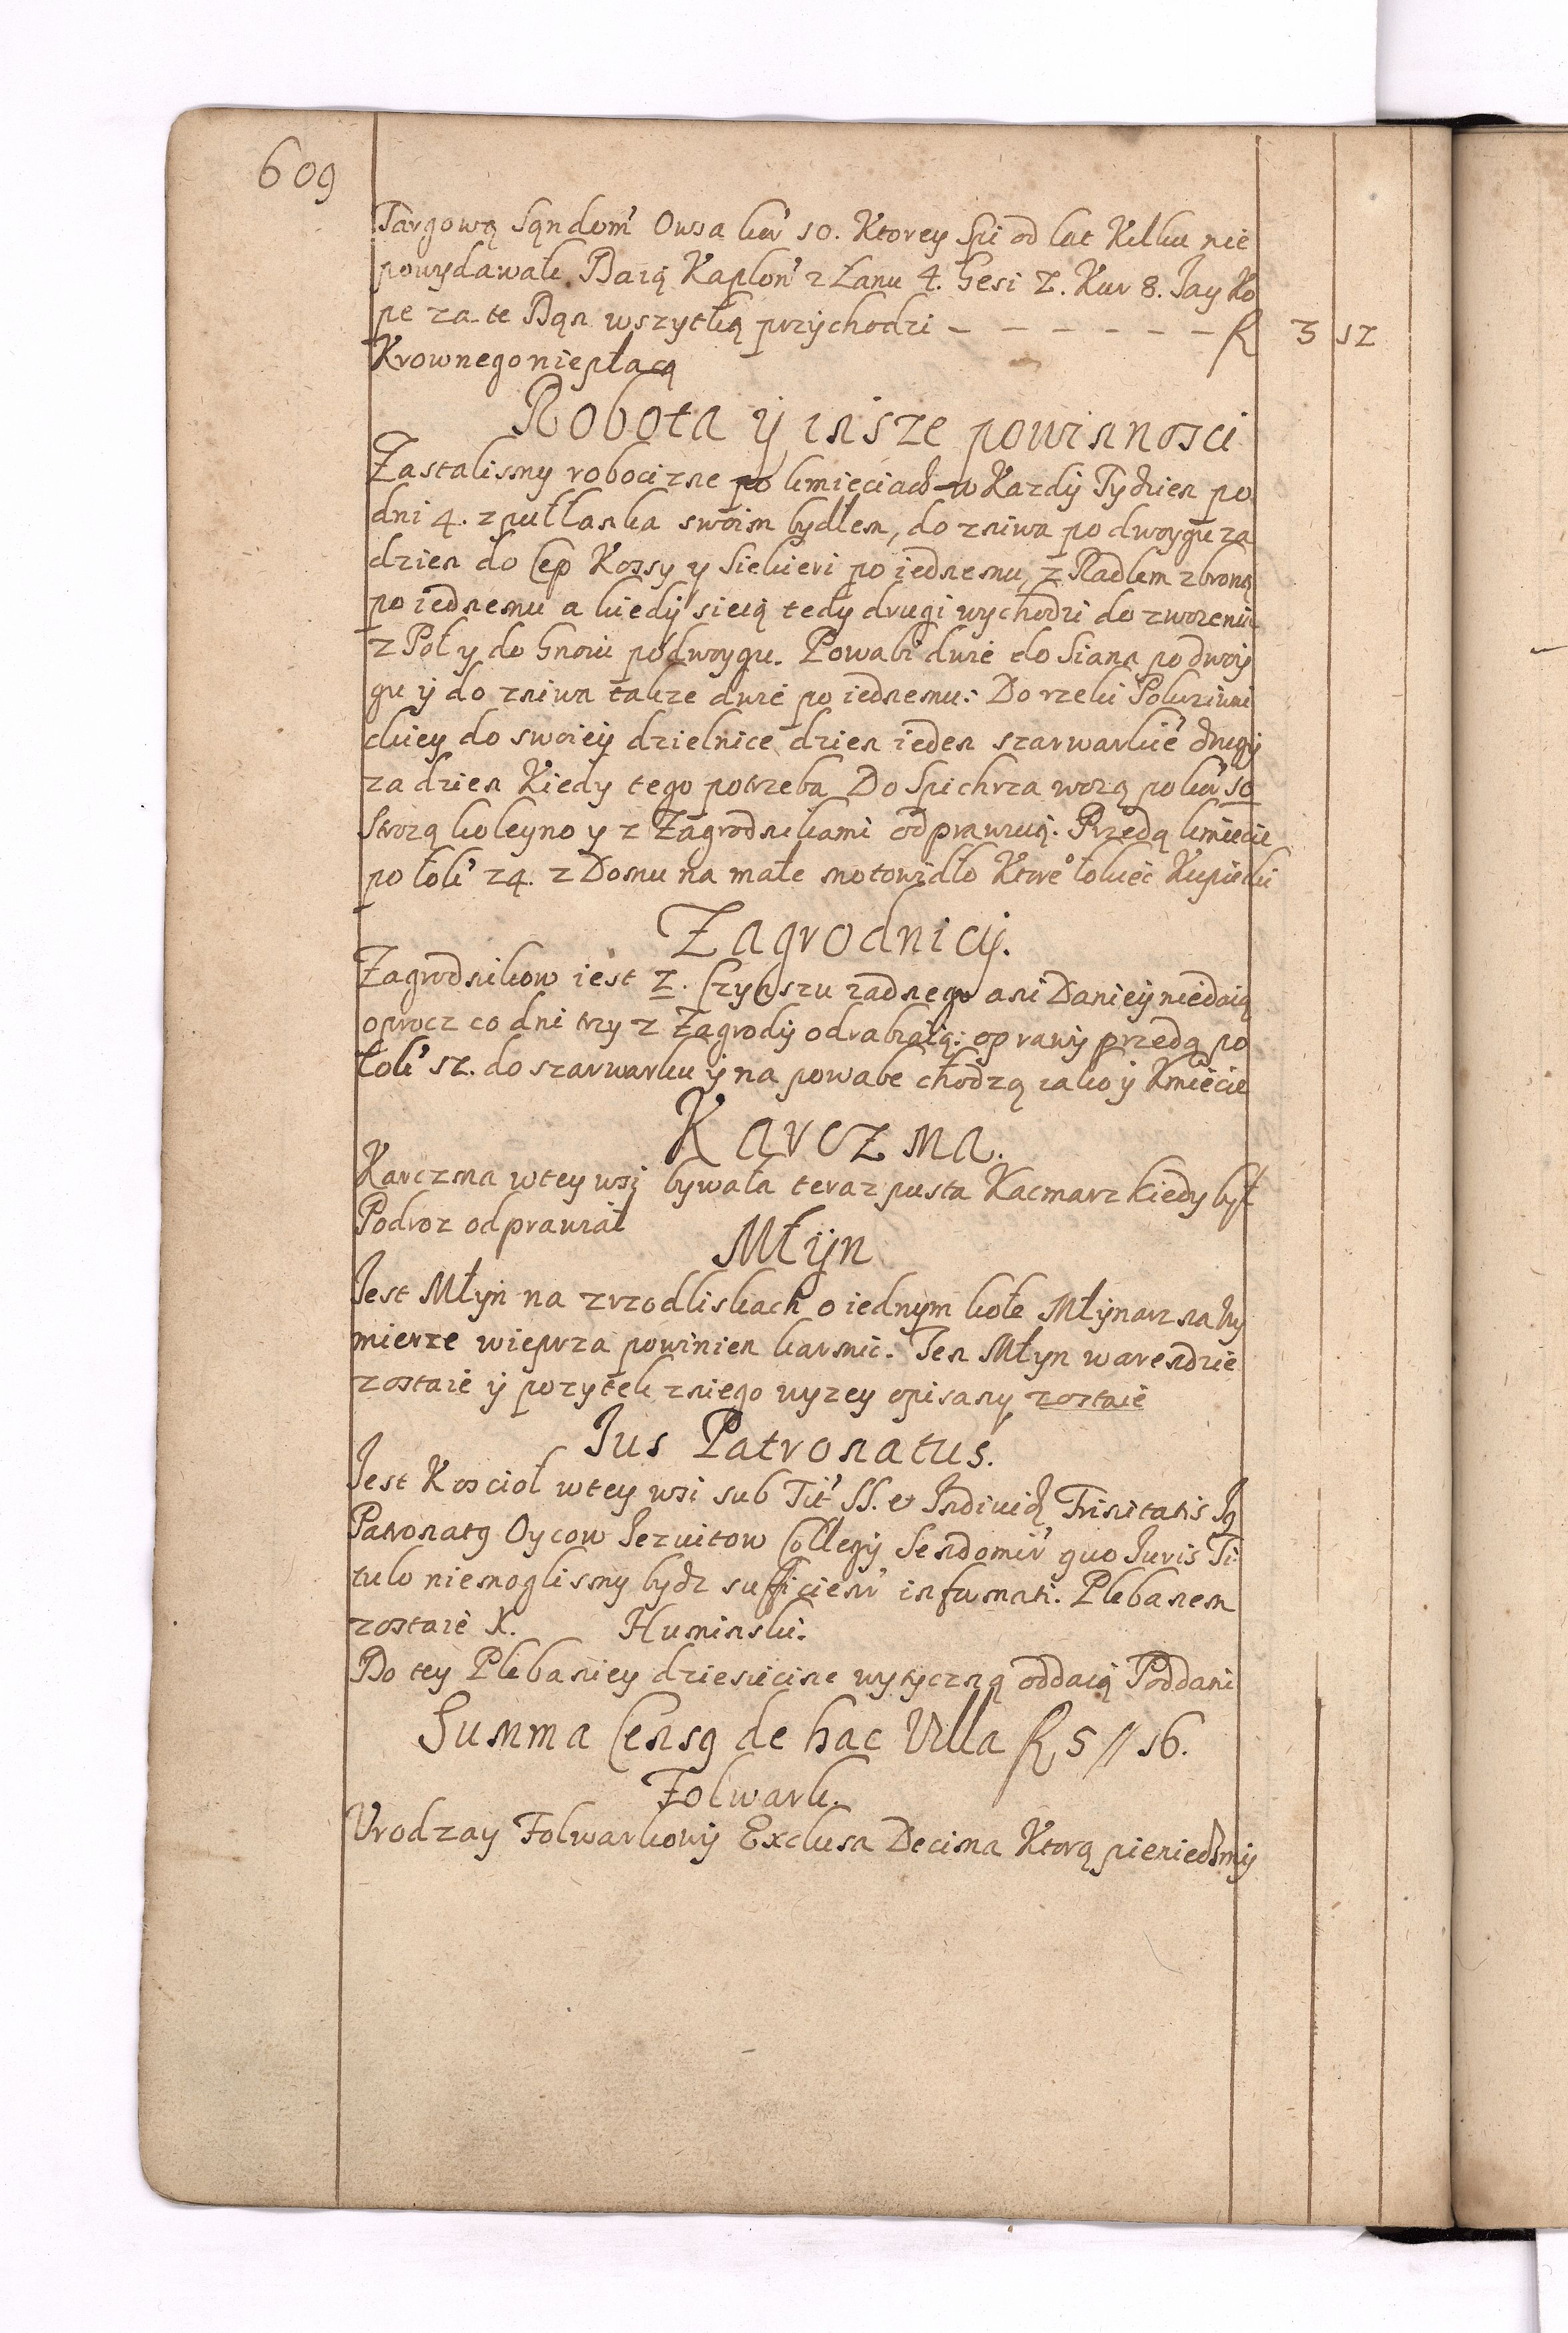 609
Targową Sądom' Owsa kor' 10. Ktorey Spi od lat Kilku nie
powydawali. Daią Kapłon' z Łanu 4. Gesi 2. Kur 8. Jay Ko
pe za te Dan wszytką przychodzi - - - - - - fl 3 12
Krownego niepłacą
Robota ÿ insze powinnosci
Zastalismy robocizne po kmieciach w Kazdÿ Tydzien po
dni 4. z pułłanka swoim bydłem, do zniwa po dwoygu za
dzien do Cep Kossy y Siekieri po iednemu, z Radlem z broną
po iednemu a kiedÿ sieią tedy drugi wychodzi do zwozenia
z Pol y do Gnoiu po dwoygu. Powabi dwie do Siana po dwoy
gu ÿ do zniwa takze dwie po iednemu: Do rzeki
ckiey do swoieÿ dzielnice dzien ieden szarwarkie drugÿ
za dzien Kiedy tego potrzeba Do Spichrza wozą po kor' 10
Strozą koleyno y z Zagrodnikami odprawuią. Przedą kmiecie
po łok' 24. z Domu na małe motowidło Ktore° łokiec Kupiecki
Zagrodnicÿ.
Zagrodnikow iest 2. Czynszu zadnego ani Danieÿ niedaią
oprocz co dni trzy z Zagrodÿ odrabiaią: oprawÿ przedą po
łok' 12. do szarwarku ÿ na powabe chodzą iako ÿ Kmiecie
Karczma.
Karczma wtey wsi bywała teraz pusta Kacmarz kiedy był
Podroz odprawiał
Młÿn
Jest Młÿn na zrzodliskach o iednym kole Młÿnarz na Wy
mierze wieprza powinien karmic. Ten Młyn w arendzie
zostaie ÿ pozytek z niego wyzey opisany zostaie
Jus Patronatus.
Jest Koscioł wtey wsi sub Tit' SS. et Individ Trinitatis Jg
Patronatg Oycow Jezuitow Collegÿ Sendomir' quo Juris Ti
tulo niemoglismy bydz sufficient' informati. Plebanem
zostaie X. Huminski.
Do tey Plebaniey dziesiecine wytyczną oddaią Poddani
Summa Censg de hac Villa fl 5 // 16.
Folwark.
Vrodzay Folwarkowÿ Exclusa Decima Ktorą pieniedzmÿ